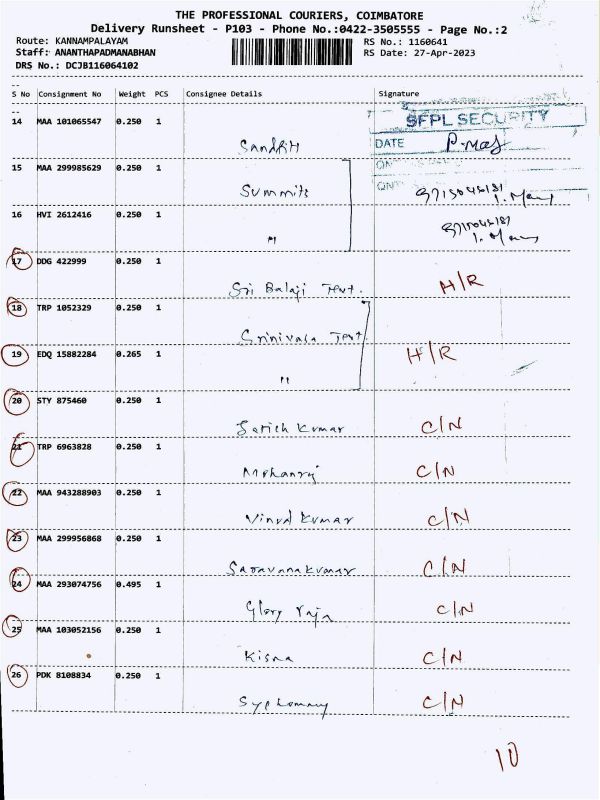 THE PROFESSIONAL COURIERS, COIMBATORE
Delivery Runsheet - P103 - Phone No.:0422-3505555 - Page No.:2
Route: KANNAMPALAYAM RS No.: 1160641
Staff: ANANTHAPADMANABHAN RS Date: 27-Apr-2023
DRS No.: DCJB116064102
S No Consignment No Weight PCS Consignee Details Signature
SFPL SECURITY
14 MAA 101065547 0.250 1
DATE
Sandhh
15 MAA 299985629 0.250 1
Summits
16 HVI 2612416 0.250 1
"
17 DDG 422999 0.250 1
Sri Balaji Text. H/R
18 TRP 1052329 0.250 1
Srinivasa Text
19 EDQ 15882284 0.265 1 H/R
"
20 STY 875460 0.250 1
Satish Kumar C/N
21 TRP 6963828 0.250 1
Mohanraj C/N
22 MAA 943288903 0.250 1
Vinod Kumar C/N
23 MAA 299956868 0.250 1
Saravanakumar C/N
24 MAA 293074756 0.495 1
Glory Raja C/N
25 MAA 103052156 0.250 1
Kisna C/N
26 PDK 8108834 0.250 1
C/N
10